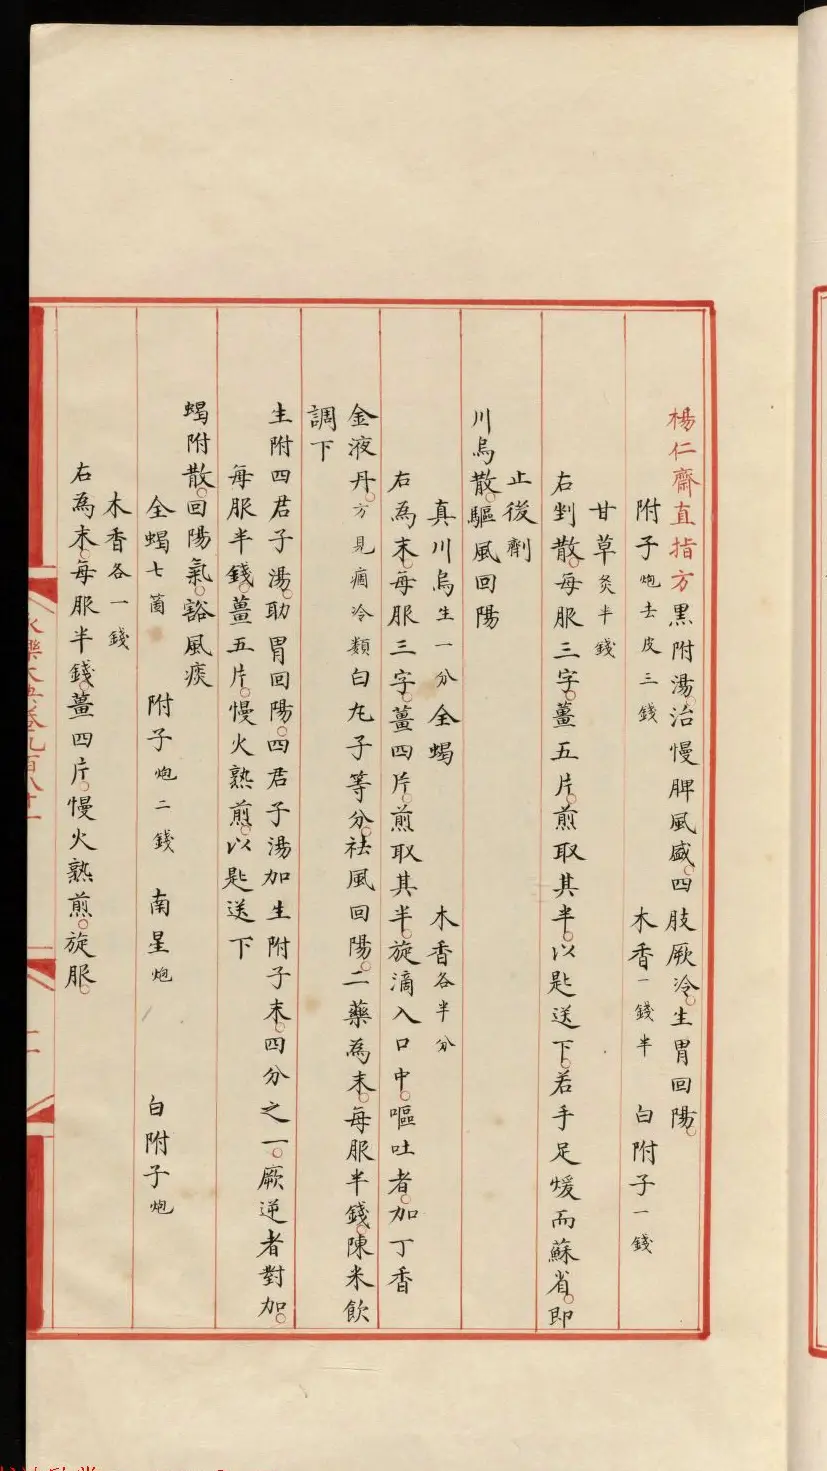 楊仁齋直指方黑附湯治慢脾風盛。四肢厥冷。生胃回陽。
附子炮去皮三錢 木香一錢半 白附子一錢
甘草炙半錢
右剉散。每服三字。薑五片。煎取其半。以匙送下。若手足煖而蘇省。即
止後劑
川烏散。驅風回陽
真川烏生一分全蝎 木香各半分
右為末。每服三字。薑四片。煎取其半。旋滴入口中。嘔吐者。加丁香
金液丹。方見痼冷類白丸子等分。祛風回陽。二藥為末。每服半錢。陳米飲
調下
生附四君子湯。助胃回陽。四君子湯加生附子末。四分之一。厥逆者對加。
每服半錢。薑五片。慢火熟煎。以匙送下
蝎附散。回陽氣。豁風痰
全蝎七箇 附子炮二錢 南星炮 白附子炮
木香各一錢
右為末。每服半錢。薑四片。慢火熟煎。旋服。